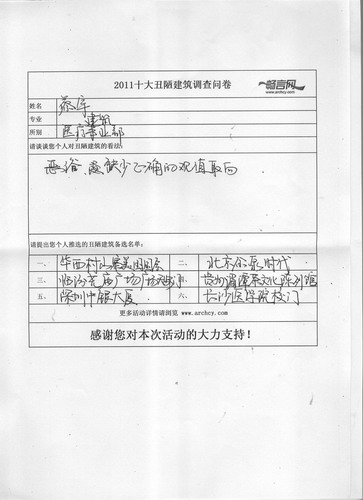 2011十大丑陋建筑调查问卷
畅言网
www.archcy.com
姓名
专业 建筑
所别 医疗事业部
请谈谈您个人对丑陋建筑的看法:
恶俗、缺少正确的观值取向
请提出您个人推选的丑陋建筑备选名单:
一、 华西村 二、 北京 时代
三、 临汾 广场 四、 文化陈列馆
五、 深圳中银大厦 六、 长沙医学院校门
更多活动详情请浏览 www.archcy.com
感谢您对本次活动的大力支持!